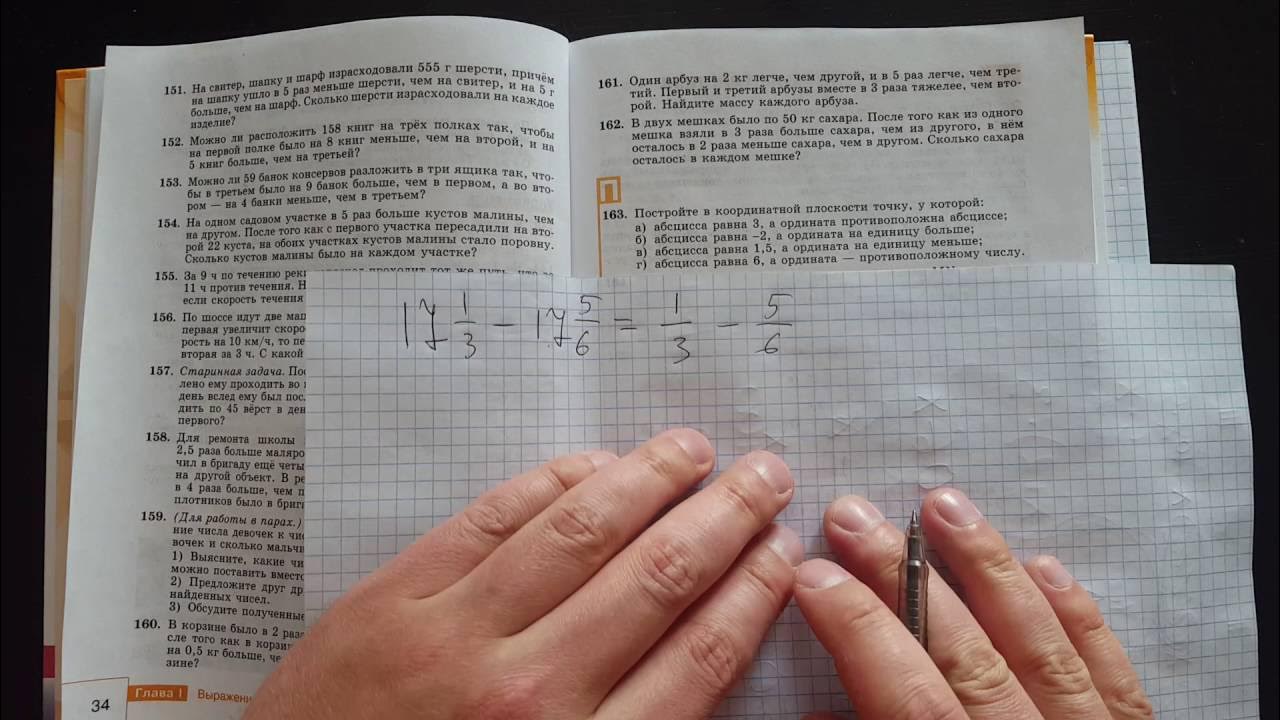 151. На свитер, шапку и шарф израсходовали 555 г шерсти, причём
на шапку ушло в 5 раз меньше шерсти, чем на свитер, и на 5 г
больше, чем на шарф. Сколько шерсти израсходовали на каждое
изделие?
152. Можно ли расположить 158 книг на трёх полках так, чтобы
на первой полке было на 8 книг меньше, чем на второй, и на
5 книг больше, чем на третьей?
153. Можно ли 59 банок консервов разложить в три ящика так, что-
бы в третьем было на 9 банок больше, чем в первом, а во вто-
ром — на 4 банки меньше, чем в третьем?
154. На одном садовом участке в 5 раз больше кустов малины, чем
на другом. После того как с первого участка пересадили на вто-
рой 22 куста, на обоих участках кустов малины стало поровну.
Сколько кустов малины было на каждом участке?
155. За 9 ч по течению реки проходит тот же путь, что за
11 ч против течения. Н
если скорость течения
156. По шоссе идут две маш
первая увеличит скоро
рость на 10 км/ч, то пе
вторая за 3 ч. С какой
157. Старинная задача. Пос
лено ему проходить во
день вслед ему был посл
дить по 45 вёрст в ден
первого?
158. Для ремонта школы
2,5 раза больше маляро
чил в бригаду ещё четы
на другой объект. В ре
в 4 раза больше, чем п
плотников было в брига
159. (Для работы в парах.)
ние числа девочек к чис
вочек и сколько мальчи
1) Выясните, какие чи
можно поставить вместо
2) Предложите друг др
найденных чисел.
3) Обсудите полученные
160. В корзине было в 2 раза
сле того как в корзин
на 0,5 кг больше, че
зине?
34 Глава I Выражени
161. Один арбуз на 2 кг легче, чем другой, и в 5 раз легче, чем тре-
тий. Первый и третий арбузы вместе в 3 раза тяжелее, чем вто-
рой. Найдите массу каждого арбуза.
162. В двух мешках было по 50 кг сахара. После того как из одного
мешка взяли в 3 раза больше сахара, чем из другого, в нём
осталось в 2 раза меньше сахара, чем в другом. Сколько сахара
осталось в каждом мешке?
П
163. Постройте в координатной плоскости точку, у которой:
а) абсцисса равна 3, а ордината противоположна абсциссе;
б) абсцисса равна –2, а ордината на единицу больше;
в) абсцисса равна 1,5, а ордината на единицу меньше;
г) абсцисса равна 6, а ордината — противоположному числу.
1y 1/3 − 1y 5/6 = 1/3 − 5/6